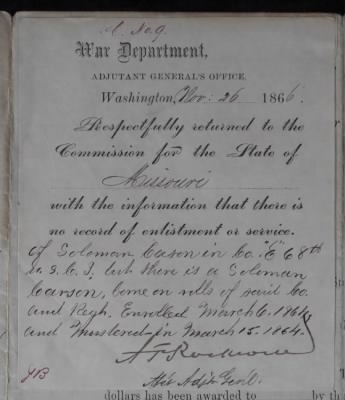 War Department,
ADJUTANT GENERAL'S OFFICE,
Washington, Nov: 26 1866.
Respectfully returned to the
Commission for the State of
Missouri
with the information that there is
no record of enlistment or service.
of Soloman Cason in Co. "E" 68th
U.S.C.T, but there is a Soloman
Carson, borne on rolls of said Co.
and Regt. Enrolled March 6. 1864,
and Mustered-in March 15. 1864.
Asst Adjt Genl.
dollars has been awarded to by th